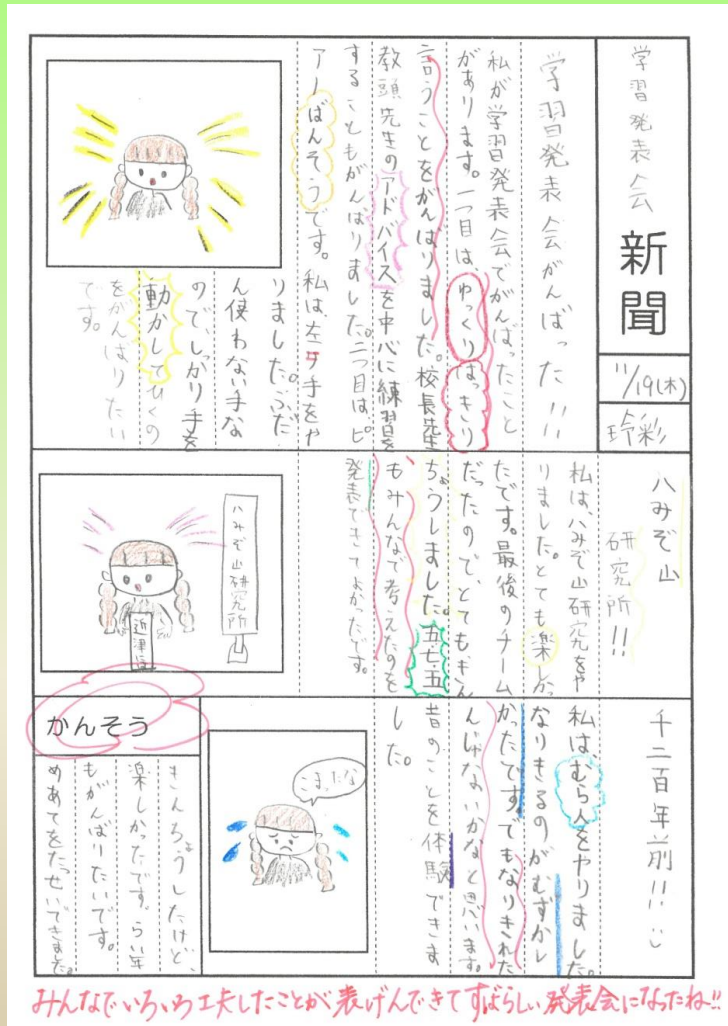 学習発表会
新聞
11/19(木)
玲彩
学習発表会がんばった!!!
私が学習発表会でがんばったこと
があります。一つ目はゆっくりはっきり
言うことをがんばりました。校長先生
教頭先生のアドバイスを中心に練習を
することもがんばりました。二つ目はピ
アノばんそうです。私は、左手をや
りました。ふだ
ん使わない手な
ので、しっかり手を
動かしてひくの
をがんばりたい
です。
八みぞ山
研究所!!
私は、八みぞ山研究をや
りました。とても楽しか
たです。最後のチーム
だったので、とてもきん
ちょうしました。五七五
もみんなで考えたのを
発表できてよかったです。
八みぞ山研究所
近津
千二百年前!!
私は、むら人をやりました。
なりきるのがむずかし
かったです。でもなりきれた
んじゃないかなと思います。
昔のことを体験できま
した。
こまったな
かんそう
きんちょうしたけど、
楽しかったです。らい年
もがんばりたいです。
めあてをたっせいできました。
みんなでいろいろ工夫したことが表げんできてすばらしい発表会になったね!!